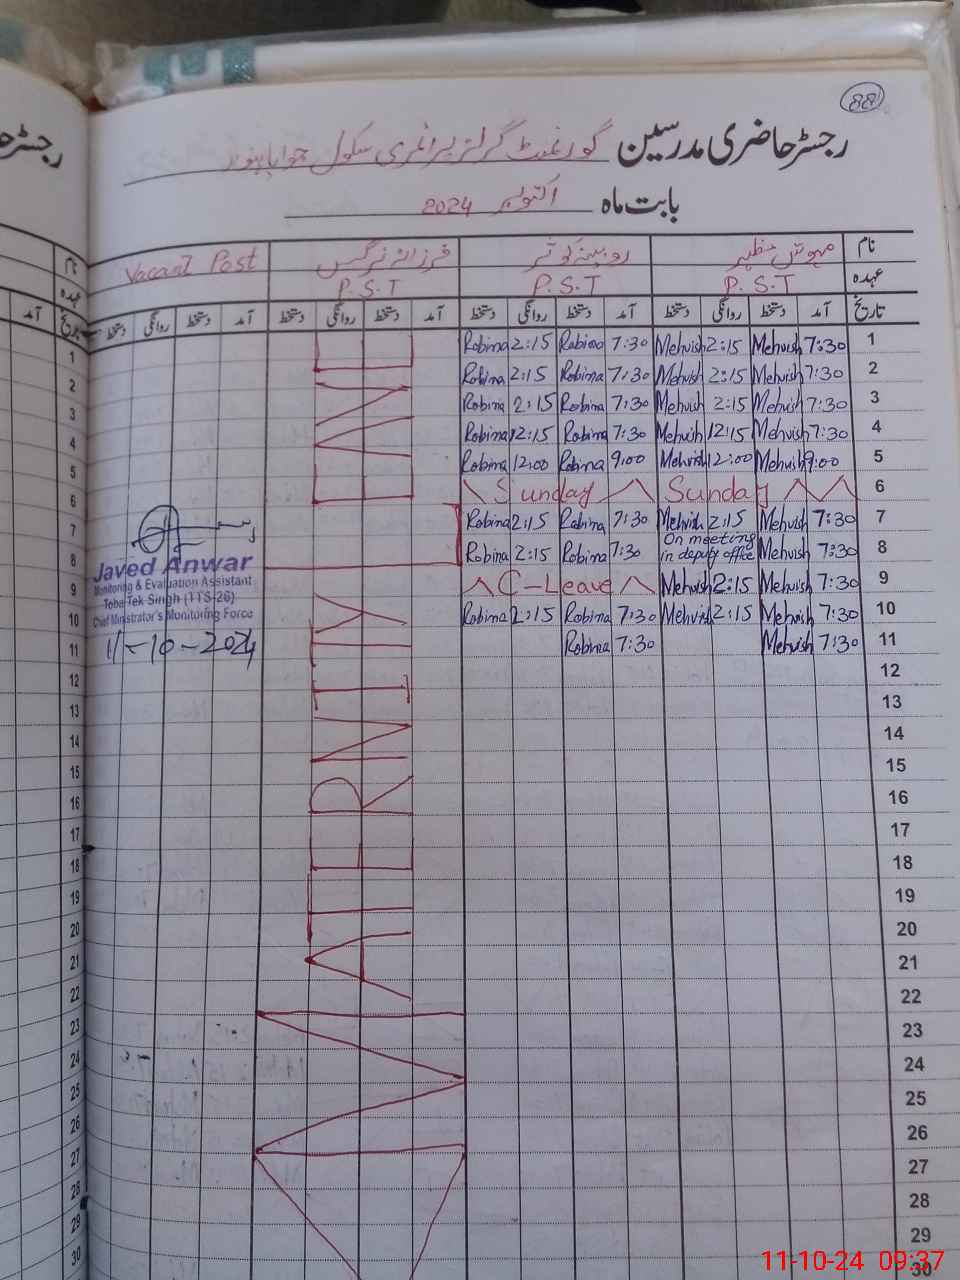 88
رجسٹر حاضری مدرسین گورنمنٹ گرلز پرائمری سکول
بابت ماہ اکتوبر 2024
نام مہوش مظہر روبینہ کوثر فرزانہ نرگس Vacant Post
عہدہ P.S.T P.S.T P.S.T
تاریخ آمد دستخط روانگی دستخط آمد دستخط روانگی دستخط آمد دستخط روانگی دستخط آمد دستخط روانگی دستخط
1 7:30 Mehvish 2:15 Mehvish 7:30 Robina 2:15 Robina
2 7:30 Mehvish 2:15 Mehvish 7:30 Robina 2:15 Robina
3 7:30 Mehvish 2:15 Mehvish 7:30 Robina 2:15 Robina
4 7:30 Mehvish 12:15 Mehvish 7:30 Robina 12:15 Robina
5 9:00 Mehvish 12:00 Mehvish 9:00 Robina 12:00 Robina
6 Sunday Sunday
7 7:30 Mehvish 2:15 Mehvish 7:30 Robina 2:15 Robina
8 7:30 Mehvish On meeting in deputy office 7:30 Robina 2:15 Robina
9 7:30 Mehvish 2:15 Mehvish C-Leave
10 7:30 Mehvish 2:15 Mehvish 7:30 Robina 2:15 Robina
11 7:30 Mehvish 7:30 Robina
12
13
14
15
16
17
18
19
20
21
22
23
24
25
26
27
28
29
30
MATERNITY
Javed Anwar
Monitoring & Evaluation Assistant
Toba Tek Singh (TTS-26)
Chief Ministrator's Monitoring Force
11-10-2024
رجسٹر
نام
عہدہ
تاریخ آمد
1
2
3
4
5
6
7
8
9
10
11
12
13
14
15
16
17
18
19
20
21
22
23
24
25
26
27
28
29
30
11-10-24 09:37